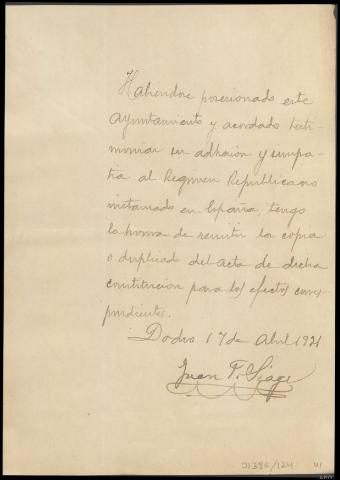 Habiendose posesionado este
Ayuntamiento y acordado testi-
moniar su adhesion y simpa-
tia al Regimen Republicano
instaurado en España, tengo
la honra de remitir la copia
o duplicado del acta de dicha
constitucion para los efectos corres-
pondientes.
Dodro 17 de Abril 1931
Juan F.